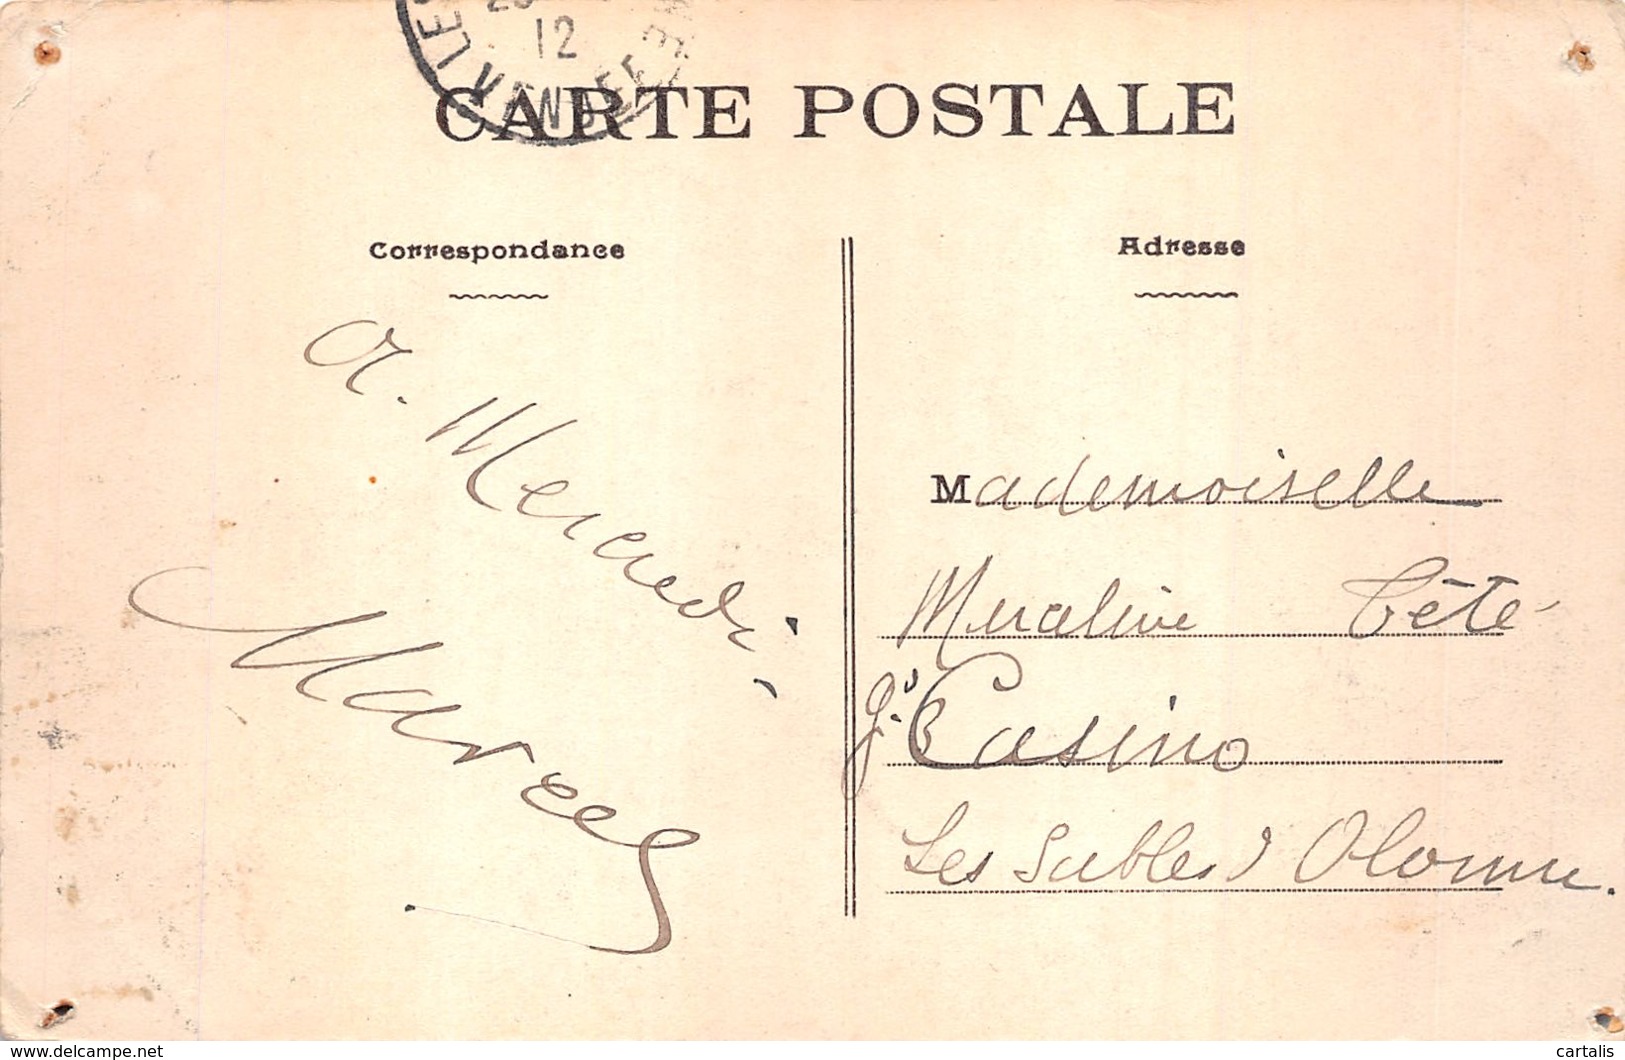 12
VENDEE
CARTE POSTALE
Correspondance
Adresse
A. Mercredi.
Marcel
Mademoiselle
Têté
Gd Casino
Les Sables d'Olonne.
www.delcampe.net
cartalis